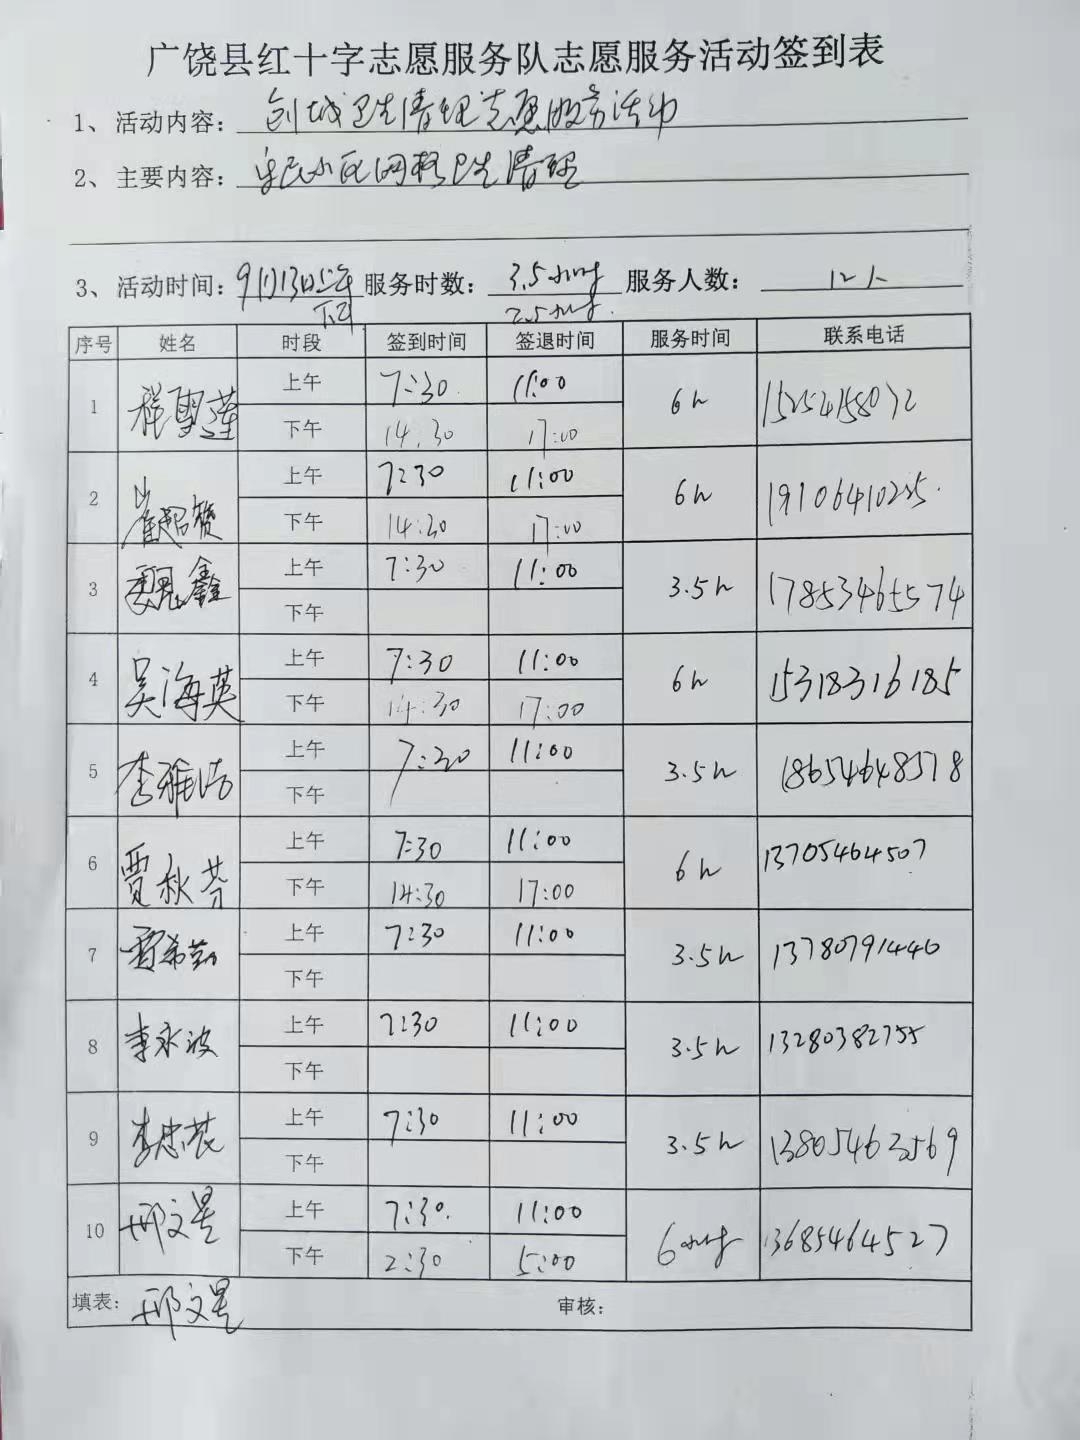 广饶县红十字志愿服务队志愿服务活动签到表
1、活动内容：创城卫生清理志愿服务活动
2、主要内容：安民小区网格卫生清理
3、活动时间：9月13日上午 服务时数：3.5小时 服务人数：12人
下午 2.5小时.
序号 姓名 时段 签到时间 签退时间 服务时间 联系电话
1 上午 7:30 11:00 6h 15254158072
下午 14:30 17:00
2 上午 7:30 11:00 6h
下午 14:30 17:00
3 魏鑫 上午 7:30 11:00 3.5h 17853465574
下午
4 吴海英 上午 7:30 11:00 6h 15318316185
下午 14:30 17:00
5 李雅洁 上午 7:30 11:00 3.5h 18654648578
下午
6 贾秋芬 上午 7:30 11:00 6h 13705464507
下午 14:30 17:00
7 上午 7:30 11:00 3.5h 13780791440
下午
8 李永波 上午 7:30 11:00 3.5h 13280382755
下午
9 上午 7:30 11:00 3.5h 13805463569
下午
10 邢文星 上午 7:30. 11:00 6小时 13685464527
下午 2:30 5:00
填表：邢文星 审核：